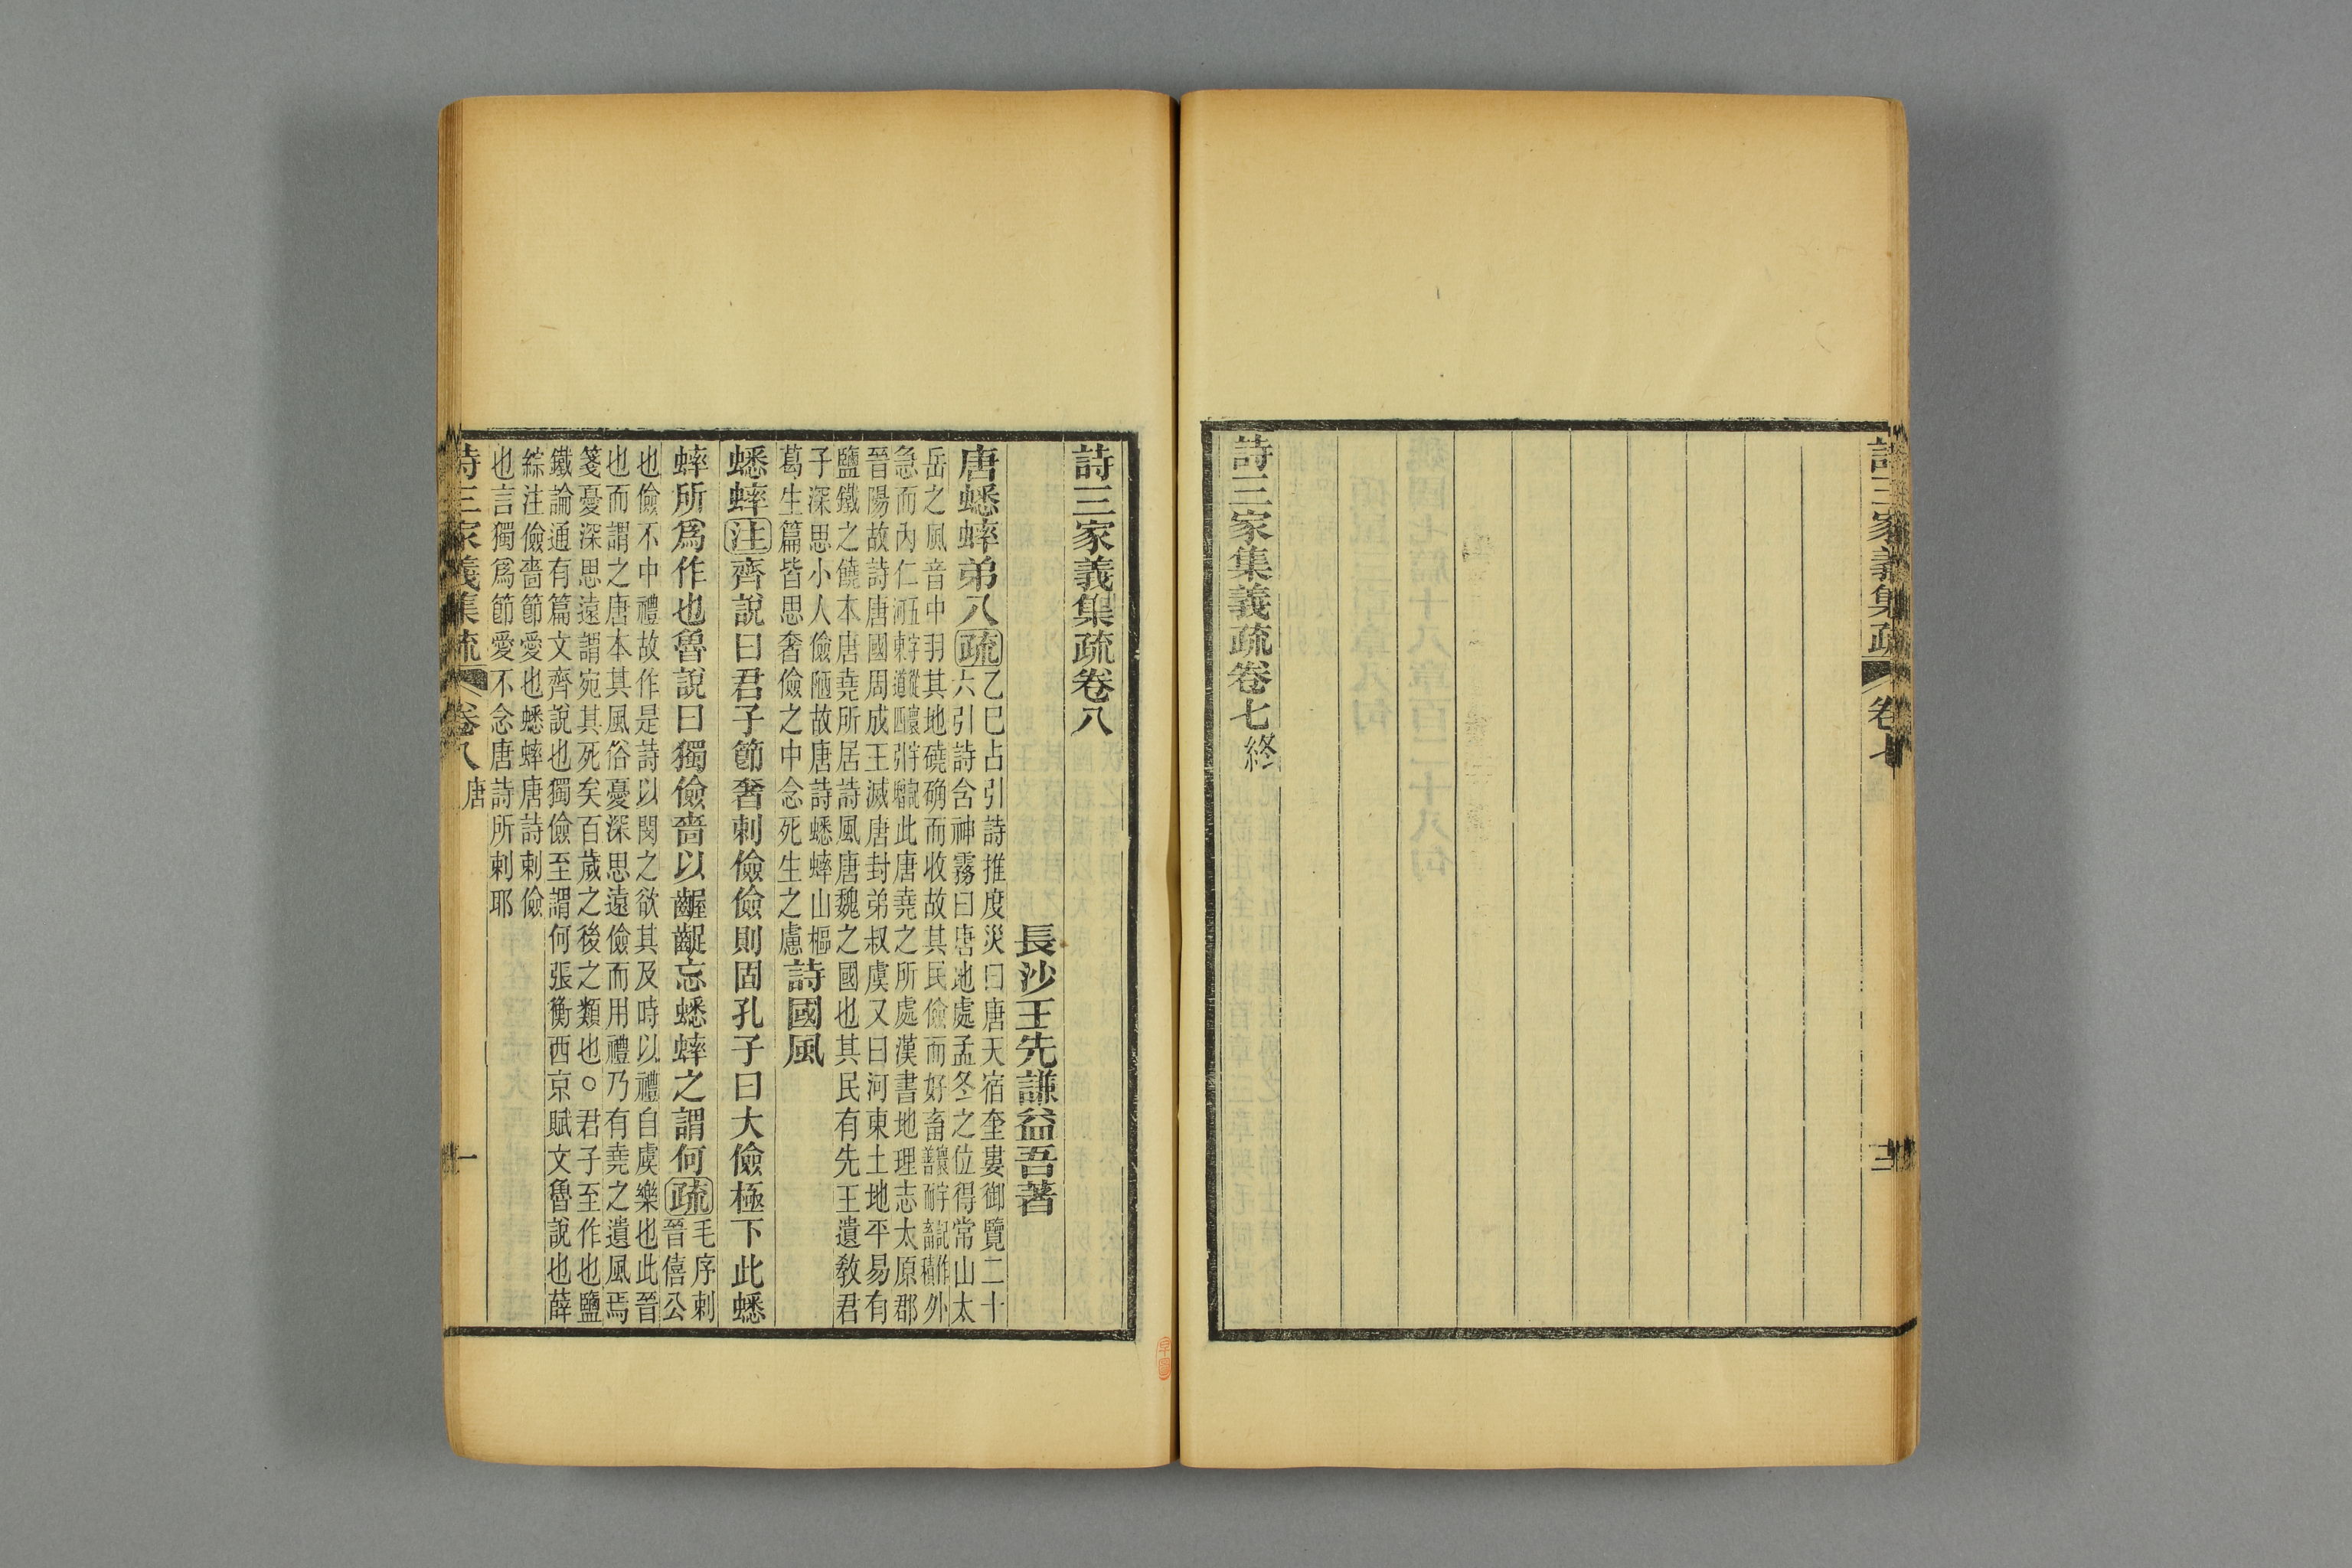 詩三家義集疏 卷七
詩三家集義疏卷七終
詩三家義集疏卷八
長沙王先謙益吾著
唐蟋蟀弟八疏
乙巳占引詩推度災曰唐天宿奎婁御覽二十
六引詩含神霧曰唐地處孟冬之位得常山太
岳之風音中羽其地磽确而收故其民儉而好畜外
急而內仁此唐堯之所處漢書地理志太原郡
晉陽故詩唐國周成王滅唐封弟叔虞又曰河東土地平易有
鹽鐵之饒本唐堯所居詩風唐魏之國也其民有先王遺敎君
子深思小人儉陋故唐詩蟋蟀山樞
葛生篇皆思奢儉之中念死生之慮
詩國風
蟋蟀注齊說曰君子節奢刺儉儉則固孔子曰大儉極下此蟋
蟀所爲作也魯說曰獨儉嗇以齷齪忘蟋蟀之謂何疏
毛序刺
晉僖公
也儉不中禮故作是詩以閔之欲其及時以禮自虞樂也此晉
也而謂之唐本其風俗憂深思遠儉而用禮乃有堯之遺風焉
箋憂深思遠謂宛其死矣百歲之後之類也○君子至作也鹽
鐵論通有篇文齊說也獨儉至謂何張衡西京賦文魯說也薛
綜注儉嗇節愛也蟋蟀唐詩刺儉
也言獨爲節愛不念唐詩所刺耶
詩三家義集疏 卷八 唐 一